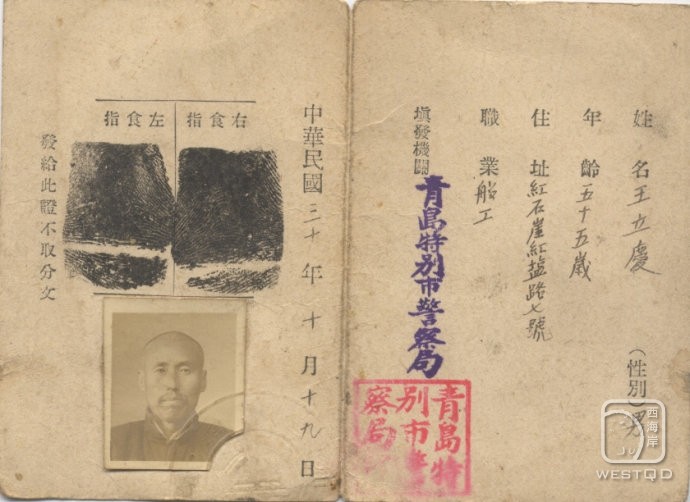 姓名王立慶
(性別)男
年齡五十五歲
住址紅石崖紅鹽路七號
職業船工
填發機關青島特別市警察局
青島特
別市警
察局
中華民國三十年十月十九日
右食指
左食指
發給此證不取分文
西海岸
WESTQD